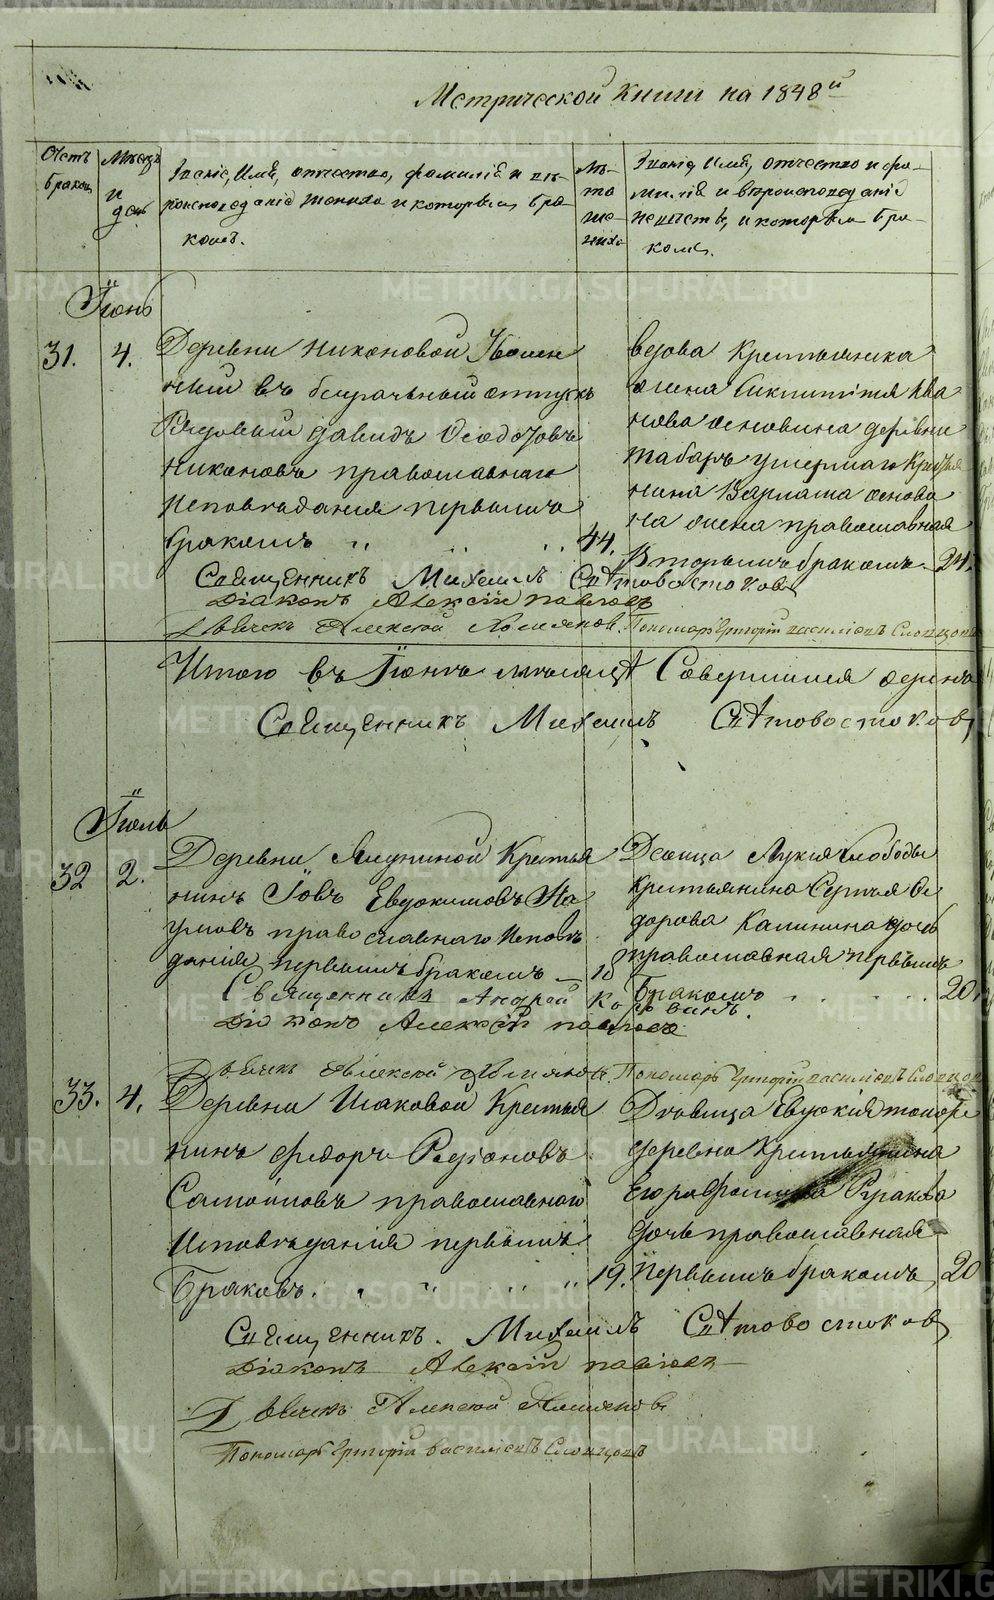 Метрической книги на 1848й
Счетъ браков
Мѣсяцъ и день
Званіе, Имя, отчество, фамилія и вѣ-
роисповеданіе жениха и которымъ бра-
комъ.
Лѣ-
та
же-
ниха
Званіе, Имя, отчество и фа-
милія и вероисповеданіе
невесты, и которымъ бра-
комъ.
Іюнь
31. 4.
Деревни Никоновой
въ безсрочный отпускъ
Рядовый Давидъ Ѳеодотовъ
Никоновъ православнаго
Исповѣданія первымъ
бракомъ 44.
вдова Крестьянка
Ива
нова деревни
Табаръ умершаго Крестья
нина Варлама
на жена православная
Вторымъ бракомъ 24.
Священникъ Михаилъ Свѣтовостоковъ
Діаконъ Алексій Павловъ
Дьячекъ Алексей Пономарь Григорій Васильевъ Словцовъ
Итого въ Іюнѣ месяцѣ Совершился одинъ
Священникъ Михаилъ Свѣтовостоковъ
Іюль
32 2.
Деревни Крестья
нинъ Іовъ Евдокимовъ На
умовъ православнаго Исповѣ
данія первымъ бракомъ
Девица Лукия Слободы
Крестьянина Сергея Ѳе
дорова Калинина дочь
православная первымъ
Бракомъ 20
Священникъ Андрей
Діаконъ Алексѣй Павловъ
Дьячекъ Алексей Пономарь Григорій Васильевъ Словцовъ
33. 4.
Деревни Исаковой Крестья
нинъ Федоръ Родіоновъ
Самойловъ православнаго
Исповѣданія первымъ
Бракомъ. 19.
Дѣвица Евдокія
деревни Крестьянина
Русакова
дочь православная
Первымъ бракомъ 20
Священникъ. Михаилъ Свѣтовостоковъ
Діаконъ Алексій Павловъ
Дьячекъ Алексей
Пономарь Григорій Васильевъ Словцовъ
METRIKI.GASO-URAL.RU